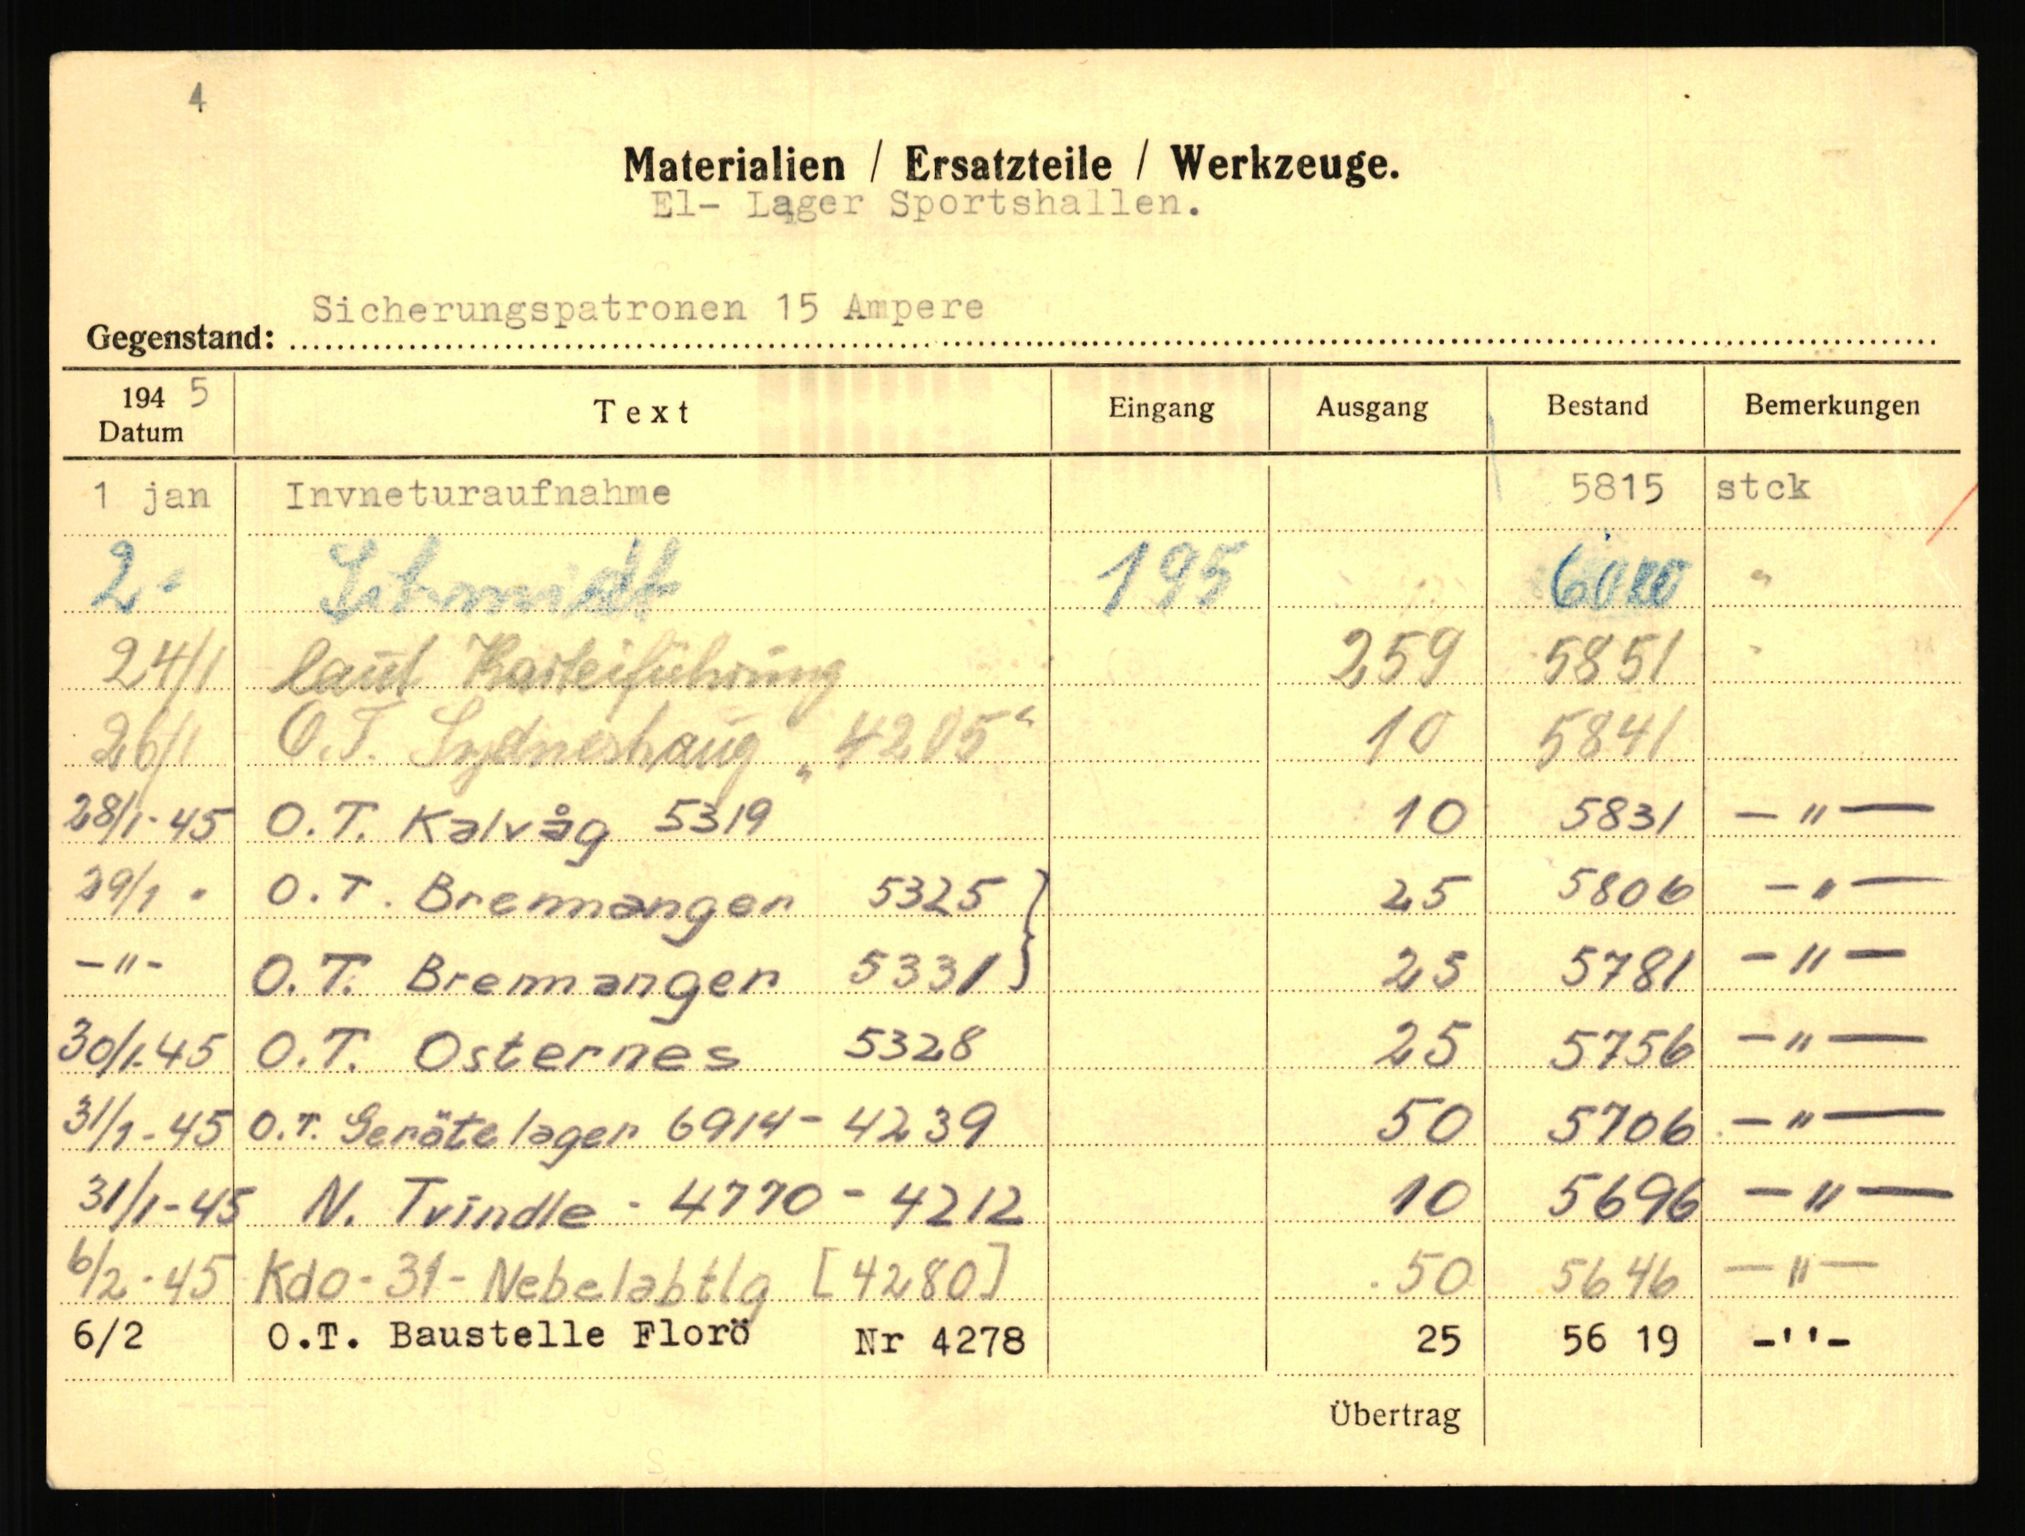 4
Materialien / Ersatzteile / Werkzeuge.
El- Lager Sportshallen.
Sicherungspatronen 15 Ampere
Gegenstand:
194 5 Datum Text Eingang Ausgang Bestand Bemerkungen
1 jan Invneturaufnahme 5815 stck
2 " Schmidt 195 6010 "
24/1 laut Karteiführung 259 5851 "
26/1 O.T. Sydneshaug "4205" 10 5841
28/1-45 O.T. Kalvåg 5319 10 5831 - " -
29/1 " O.T. Bremmanger 5325 } 25 5806 - " -
- " - O.T. Bremmanger 5331 } 25 5781 - " -
30/1-45 O.T. Osternes 5328 25 5756 - " -
31/1-45 O.T. Gerätelager 6914 - 4239 50 5706 - " -
31/1-45 N. Tvindle - 4770 - 4212 10 5696 - " -
6/2-45 Kdo-31-Nebelabtlg [4280] 50 5646 - " -
6/2 O.T. Baustelle Florö Nr 4278 25 56 19 -''-
Übertrag